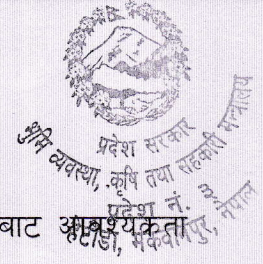 प्रदेश सरकार
भूमि व्यवस्था, कृषि तथा सहकारी मन्त्रालय
प्रदेश नं. ३
हेटौंडा, मकवानपुर, नेपाल
बाट आवश्यकता